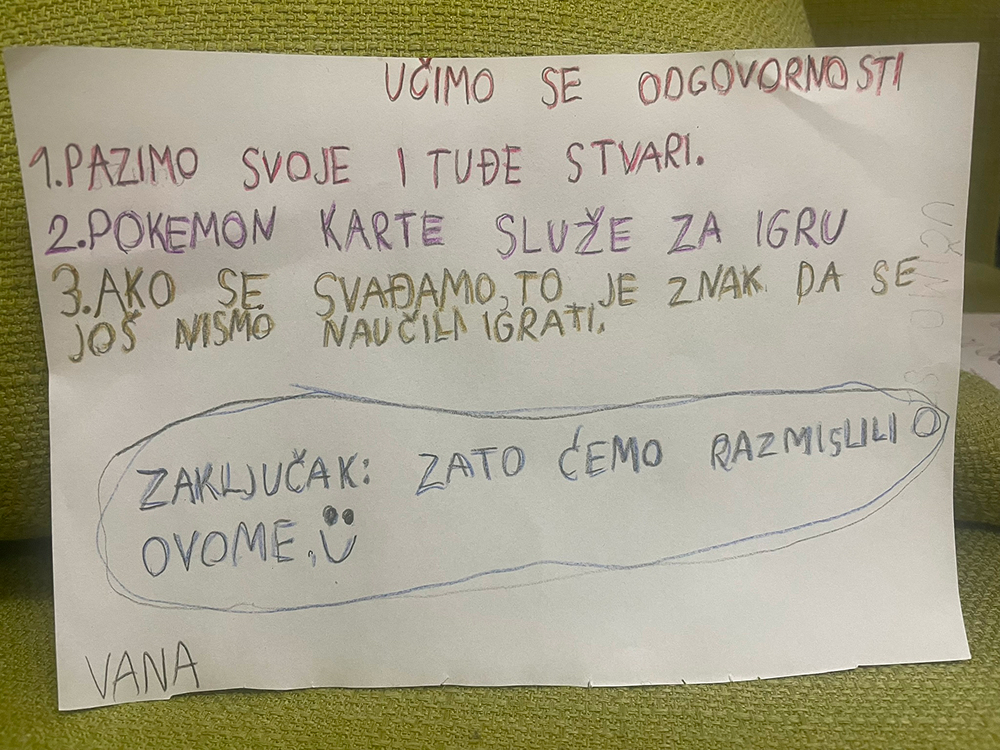 UČIMO SE ODGOVORNOSTI
1.PAZIMO SVOJE I TUĐE STVARI.
2.POKEMON KARTE SLUŽE ZA IGRU
3.AKO SE SVAĐAMO,TO JE ZNAK DA SE
JOŠ NISMO NAUČILI IGRATI.
ZAKLJUČAK: ZATO ĆEMO RAZMISLILI O
OVOME.
VANA
UČIMO